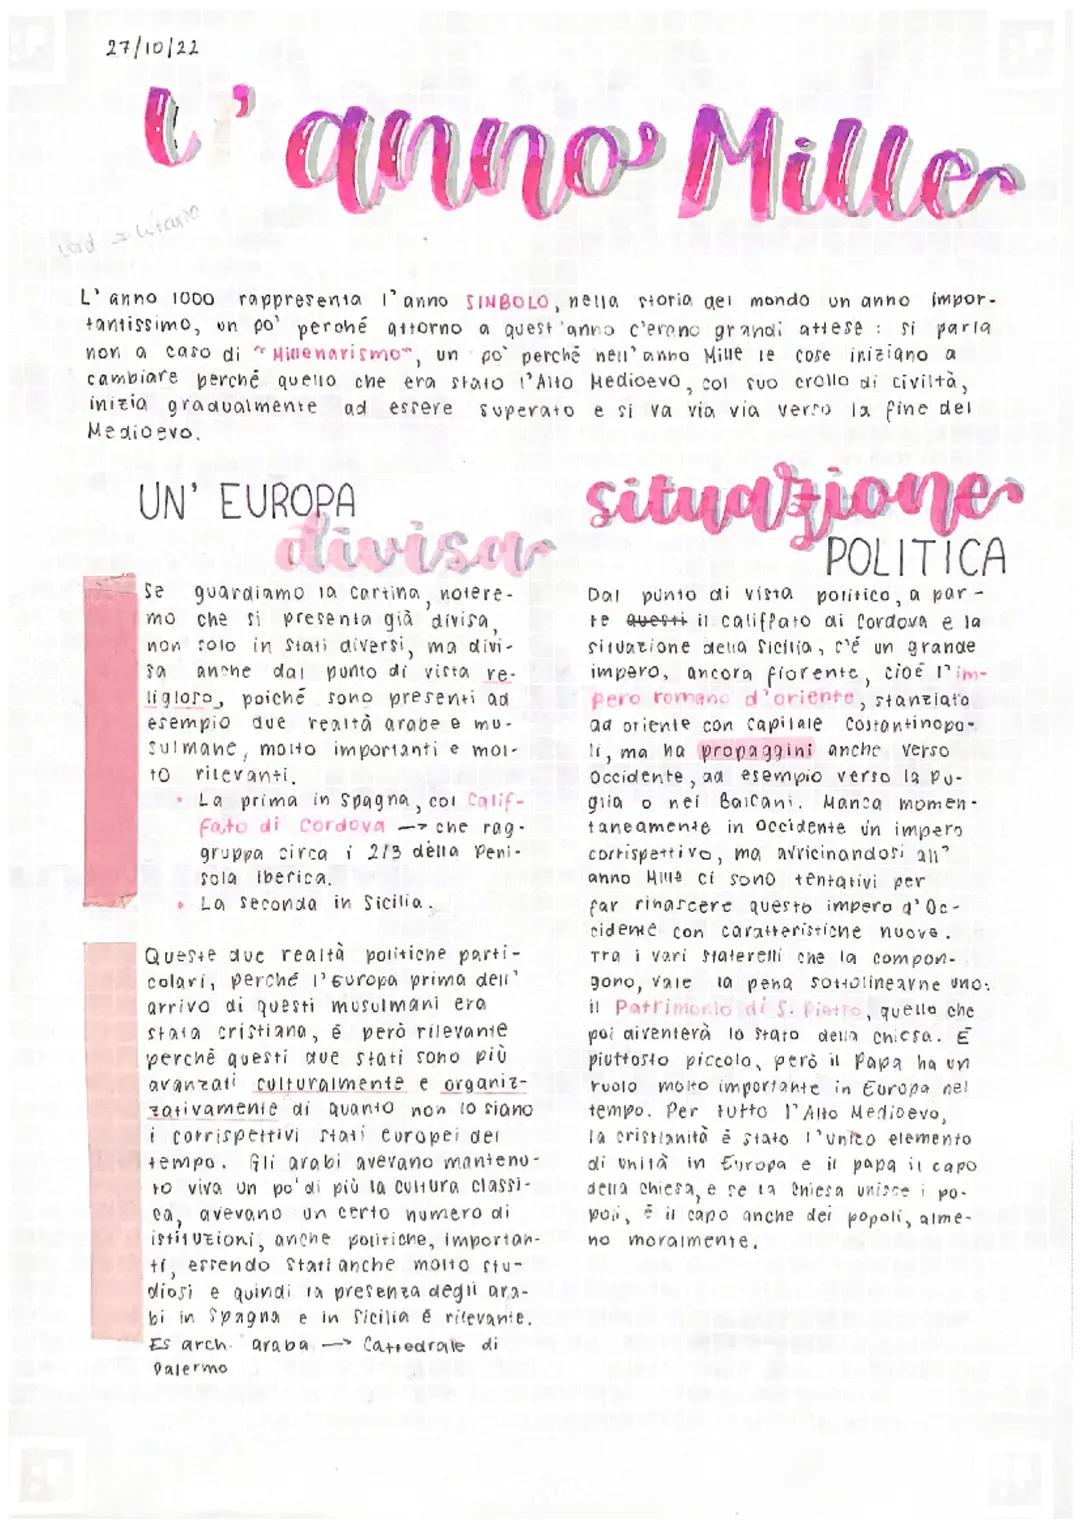 27/10/22
L'anno Mille
L'anno 1000 rappresenta l'anno SINBOLO, nella storia del mondo un anno impor-
tantissimo, un po' perché attorno a quest'anno c'erano grandi attese : si parla
non a caso di "Millenarismo", un po' perchè nell'anno Mille le cose iniziano a
cambiare perché quello che era stato l'Alto Medioevo, col suo crollo di civiltà,
inizia gradualmente ad essere superato e si va via via verso la fine del
Medioevo.
UN' EUROPA
divisa
Se guardiamo la cartina, notere-
mo che si presenta già divisa,
non solo in Stati diversi, ma divi-
sa anche dal punto di vista re-
ligioso, poiché sono presenti ad
esempio due realtà arabe e mu-
sulmane, molto importanti e mol-
to rilevanti.
• La prima in Spagna, col Calif-
fato di Cordova —> che rag-
gruppa circa i 2/3 della Peni-
sola Iberica.
• La seconda in Sicilia.
Queste due realtà politiche parti-
colari, perché l'Europa prima dell'
arrivo di questi musulmani era
stata cristiana, é però rilevante
perchè questi due stati sono più
avanzati culturalmente e organiz-
zativamente di quanto non lo siano
i corrispettivi stati europei del
tempo. Gli arabi avevano mantenu-
to viva un po' di più la cultura classi-
ca, avevano un certo numero di
istituzioni, anche politiche, importan-
ti, essendo Stati anche molto stu-
diosi e quindi la presenza degli ara-
bi in Spagna e in Sicilia é rilevante.
Es arch. araba —> Cattedrale di
Palermo
situazione
POLITICA
Dal punto di vista politico, a par-
te questi il califfato di Cordova e la
situazione della Sicilia, c'é un grande
impero, ancora fiorente, cioé l'im-
pero romano d'oriente, stanziato
ad oriente con capitale Costantinopo-
li, ma ha propaggini anche verso
Occidente, ad esempio verso la Pu-
glia o nei Balcani. Manca momen-
taneamente in Occidente un impero
corrispettivo, ma avvicinandosi all'
anno Mille ci sono tentativi per
far rinascere questo impero d'Oc-
cidente con caratteristiche nuove.
Tra i vari staterelli che la compon-
gono, vale la pena sottolinearne uno:
il Patrimonio di S. Pietro, quello che
poi diventerà lo Stato della Chiesa. É
piuttosto piccolo, però il Papa ha un
ruolo molto importante in Europa nel
tempo. Per tutto l'Alto Medioevo,
la cristianità é stato l'unico elemento
di unità in Europa e il papa il capo
della Chiesa, e se la Chiesa unisce i po-
poli, é il capo anche dei popoli, alme-
no moralmente.